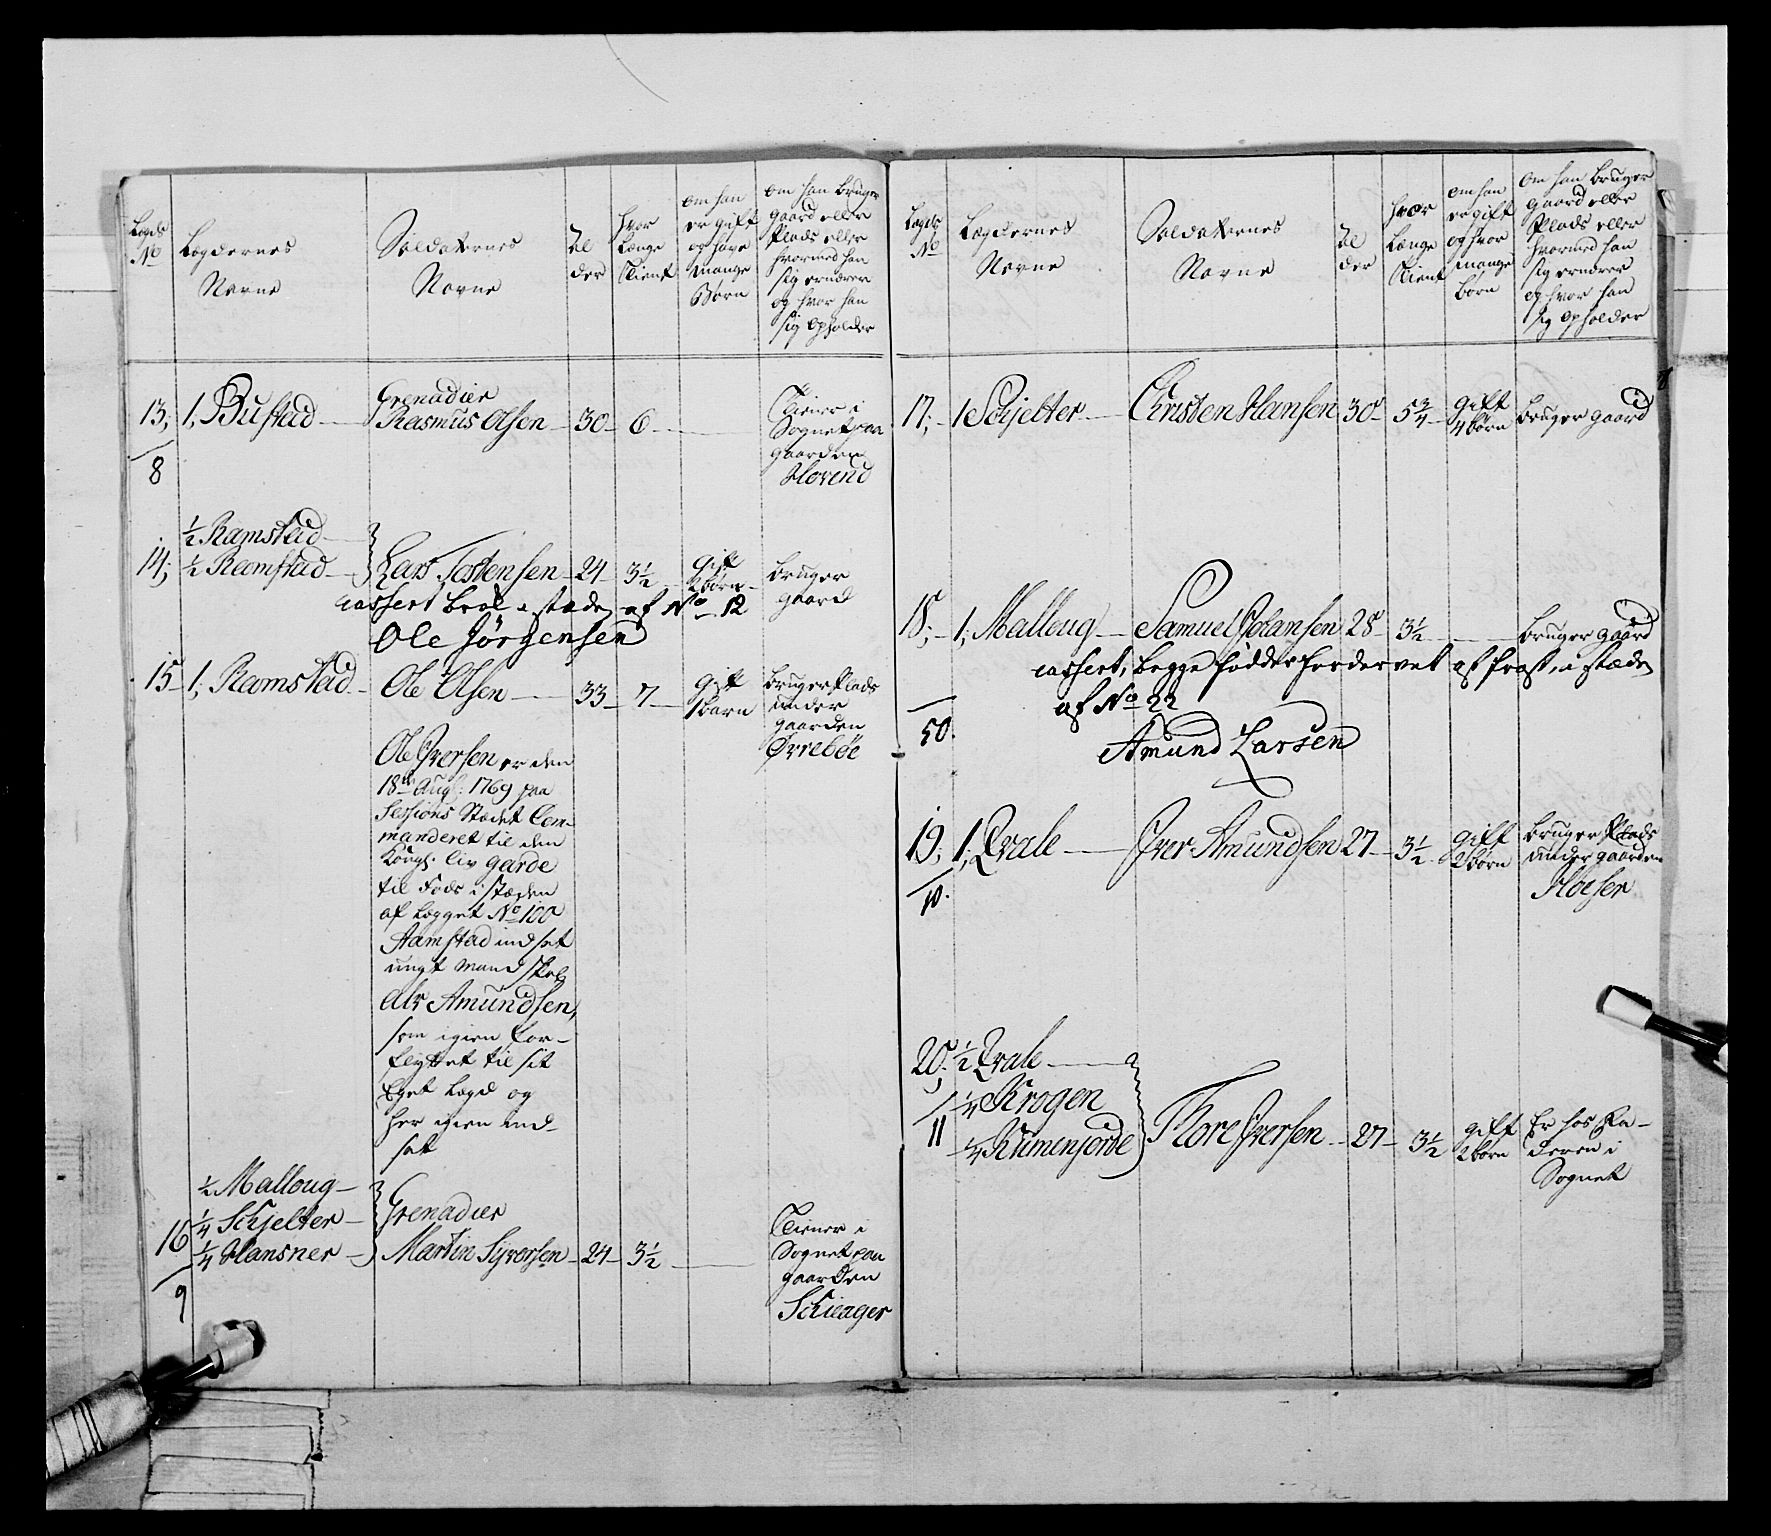 Legds No
Lægdernes Navne
Soldaternes Navne
Al der
hvor Længe Tient
om han er gift og hvor mange Børn
om han bruger gaard eller Plads eller hvormed han sig ernærer og hvor han sig opholder
13; 1, Bustad Grenadier Rasmus Olsen 30 6 Tiener i Sognet paa gaarden Horend
8
½ Ramstad
14; ½ Ramstad Lars Tostensen 24 3½ gift 2 børn bruger gaard
cassert i stæden af No 12
Ole Jörgensen
15 1; Ramstad Ole Olsen 33 7 gift 1 barn bruger Plads under gaarden Øvrebøe
Ole Iversen er den
18de Aug: 1769 paa
Sessions Stædet Com-
manderet til den
Kongl. liv garde
til Fods i stæden
af Legget No 100
Hamstad indsat
ungt Mandskab
Alv Amundsen,
som igien for-
flyttet til sit
Eget Lægd og
her igien ind-
sat
½ Malloug
¼ Schjelter Grenadier
16 ¼ Hansner Martin Syversen 24 3½ Tiener i Sognet paa gaarden Schieager
9
Legds No
Lægdernes Navne
Soldaternes Navne
Al der
hvor Længe Tient
om han er gift og hvor mange børn
om han bruger gaard eller Plads eller hvormed han sig ernærer og hvor han sig opholder
17; 1 Schjelter Christen Hansen 30 5¾ gift 4 børn bruger gaard
18; 1; Malloug Samuel Johansen 28 3½ bruger gaard
cassert, begge fødder fordervet af frost, i stæden
af No 22
50.
Amund Larsen
19; 1; Qvale Iver Amundsen 27 3½ gift 2 børn bruger Plads under gaarden Hoesen
10.
20; ½ Qvale
¼ Krogen
11 ¼ Kumenjorde Thore Iversen 27 3½ gift 2 børn Er hos Fa-
deren i
Sognet